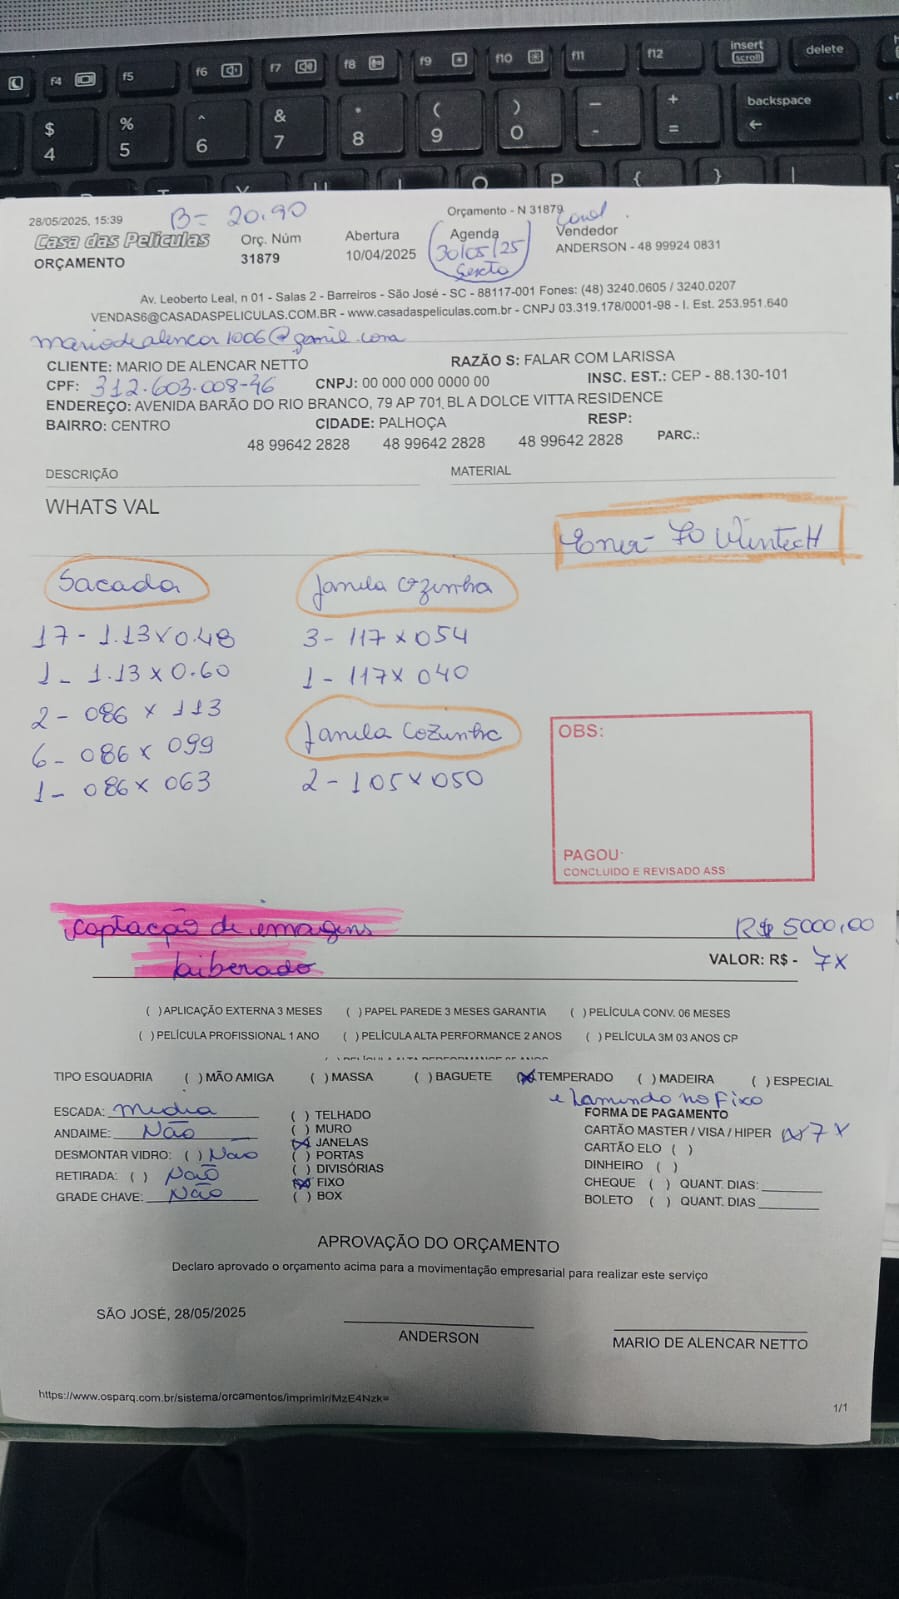 insert
delete
f4
f5
f6
f7
f8
f9
f10
f11
f12
scroll
$ % ^ & * ( ) _ + backspace
4 5 6 7 8 9 0 - = ←
O P { } |
28/05/2025, 15:39
B= 20.90
Orçamento - N 31879
Casa das Películas
ORÇAMENTO
Orç. Núm
31879
Abertura
10/04/2025
Agenda
30/05/25
Sexta
Vendedor
ANDERSON - 48 99924 0831
Av. Leoberto Leal, n 01 - Salas 2 - Barreiros - São José - SC - 88117-001 Fones: (48) 3240.0605 / 3240.0207
VENDAS6@CASADASPELICULAS.COM.BR - www.casadaspeliculas.com.br - CNPJ 03.319.178/0001-98 - I. Est. 253.951.640
mariodealencar1006@gamil.com
CLIENTE: MARIO DE ALENCAR NETTO RAZÃO S: FALAR COM LARISSA
CPF: 312.603.008-46 CNPJ: 00 000 000 0000 00 INSC. EST.: CEP - 88.130-101
ENDEREÇO: AVENIDA BARÃO DO RIO BRANCO, 79 AP 701, BL A DOLCE VITTA RESIDENCE
BAIRRO: CENTRO CIDADE: PALHOÇA RESP:
48 99642 2828 48 99642 2828 48 99642 2828 PARC.:
DESCRIÇÃO MATERIAL
WHATS VAL
Ener- 70 WintecH
Sacada Janela Cozinha
17 - 1.13x0.48 3 - 117 x 054
1 - 1.13 x 0.60 1 - 117x 040
2 - 086 x 113 Janela Cozinha
6 - 086 x 099 2 - 105 x 050
1 - 086 x 063
OBS:
PAGOU
CONCLUIDO E REVISADO ASS
captação de emagens
liberado
R$ 5000,00
VALOR: R$ - 7x
( ) APLICAÇÃO EXTERNA 3 MESES ( ) PAPEL PAREDE 3 MESES GARANTIA ( ) PELÍCULA CONV. 06 MESES
( ) PELÍCULA PROFISSIONAL 1 ANO ( ) PELÍCULA ALTA PERFORMANCE 2 ANOS ( ) PELÍCULA 3M 03 ANOS CP
TIPO ESQUADRIA ( ) MÃO AMIGA ( ) MASSA ( ) BAGUETE (x) TEMPERADO ( ) MADEIRA ( ) ESPECIAL
e Lamindo no Fixo
ESCADA: media
ANDAIME: Não
DESMONTAR VIDRO: ( ) Não
RETIRADA: ( ) Não
GRADE CHAVE: Não
( ) TELHADO
( ) MURO
(x) JANELAS
( ) PORTAS
( ) DIVISÓRIAS
(x) FIXO
( ) BOX
FORMA DE PAGAMENTO
CARTÃO MASTER / VISA / HIPER (x) 7x
CARTÃO ELO ( )
DINHEIRO ( )
CHEQUE ( ) QUANT. DIAS:
BOLETO ( ) QUANT. DIAS
APROVAÇÃO DO ORÇAMENTO
Declaro aprovado o orçamento acima para a movimentação empresarial para realizar este serviço
SÃO JOSÉ, 28/05/2025
ANDERSON
MARIO DE ALENCAR NETTO
https://www.osparq.com.br/sistema/orcamentos/imprimir/MzE4Nzk=
1/1